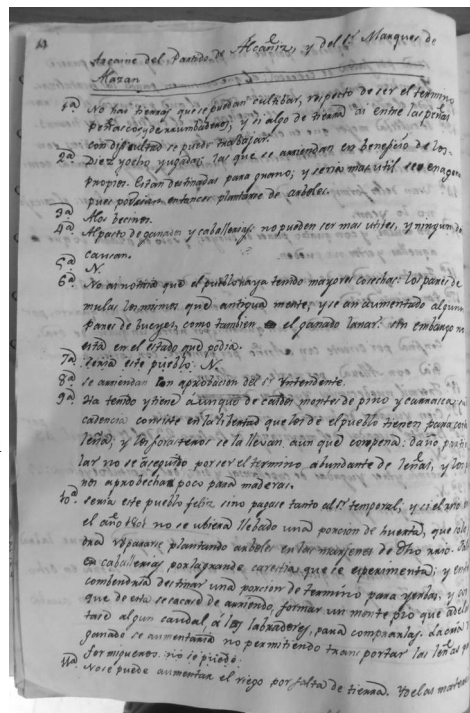 Azcaine del Partido de Alcañiz, y del Sr. Marques de
Alazan
1ª No hai tierras que se puedan cultibar, respecto de ser el termino
peñascos y derrumbaderos, y si algo de tierra ai entre las peñas
con dificultad se puede trabajar.
2ª Diez y ocho yugadas las que se arriendan en beneficio de los
propios. Estan destinadas para grano; y seria mas util se enagena
pues podrian entonces plantarse de arboles.
3ª A los becinos.
4ª Al pasto de ganados y caballerias: no pueden ser mas utiles, y ningun da
causan.
5ª N.
6ª No ai noticia que el pueblo haya tenido mayores cosechas: los pares de
mulas los mismos que antigua mente; y se an aumentado algun
pares de bueyes, como tambien el ganado lanar: sin embargo no
está en el estado que podia.
7ª seria este pueblo: N.
8ª se arriendan con aprobacion del Sr. Yntendente.
9ª Ha tenido y tiene aunque de caidos montes de pino y carrasca; su
cadencia consiste en la libertad que los de el pueblo tienen para cor
leña; y los forasteros se la llevan, aun que con pena: daño parti
lar no se a seguido por ser el termino abundante de leñas, y los
nos aprobechan poco para maderas.
10ª seria este pueblo feliz sino pagase tanto al Sr. temporal; y si el año
el año 1801 no se ubiera llebado una porcion de huerta, que
dria repararse plantando arboles en las margenes de dho rio.
en caballerias por la grande carestia que se experimenta; y
combendria destinar una porcion de termino para yerbas, y
que de esta se sacase de arriendo, formar un monte pio que adela
tase algun caudal, á los labradores, para comprarlas. La cria
ganado se aumentaria no permitiendo trans portar las leñas
Hormigueros: no se puede.
11ª No se puede aumentar el riego por falta de tierra. De las